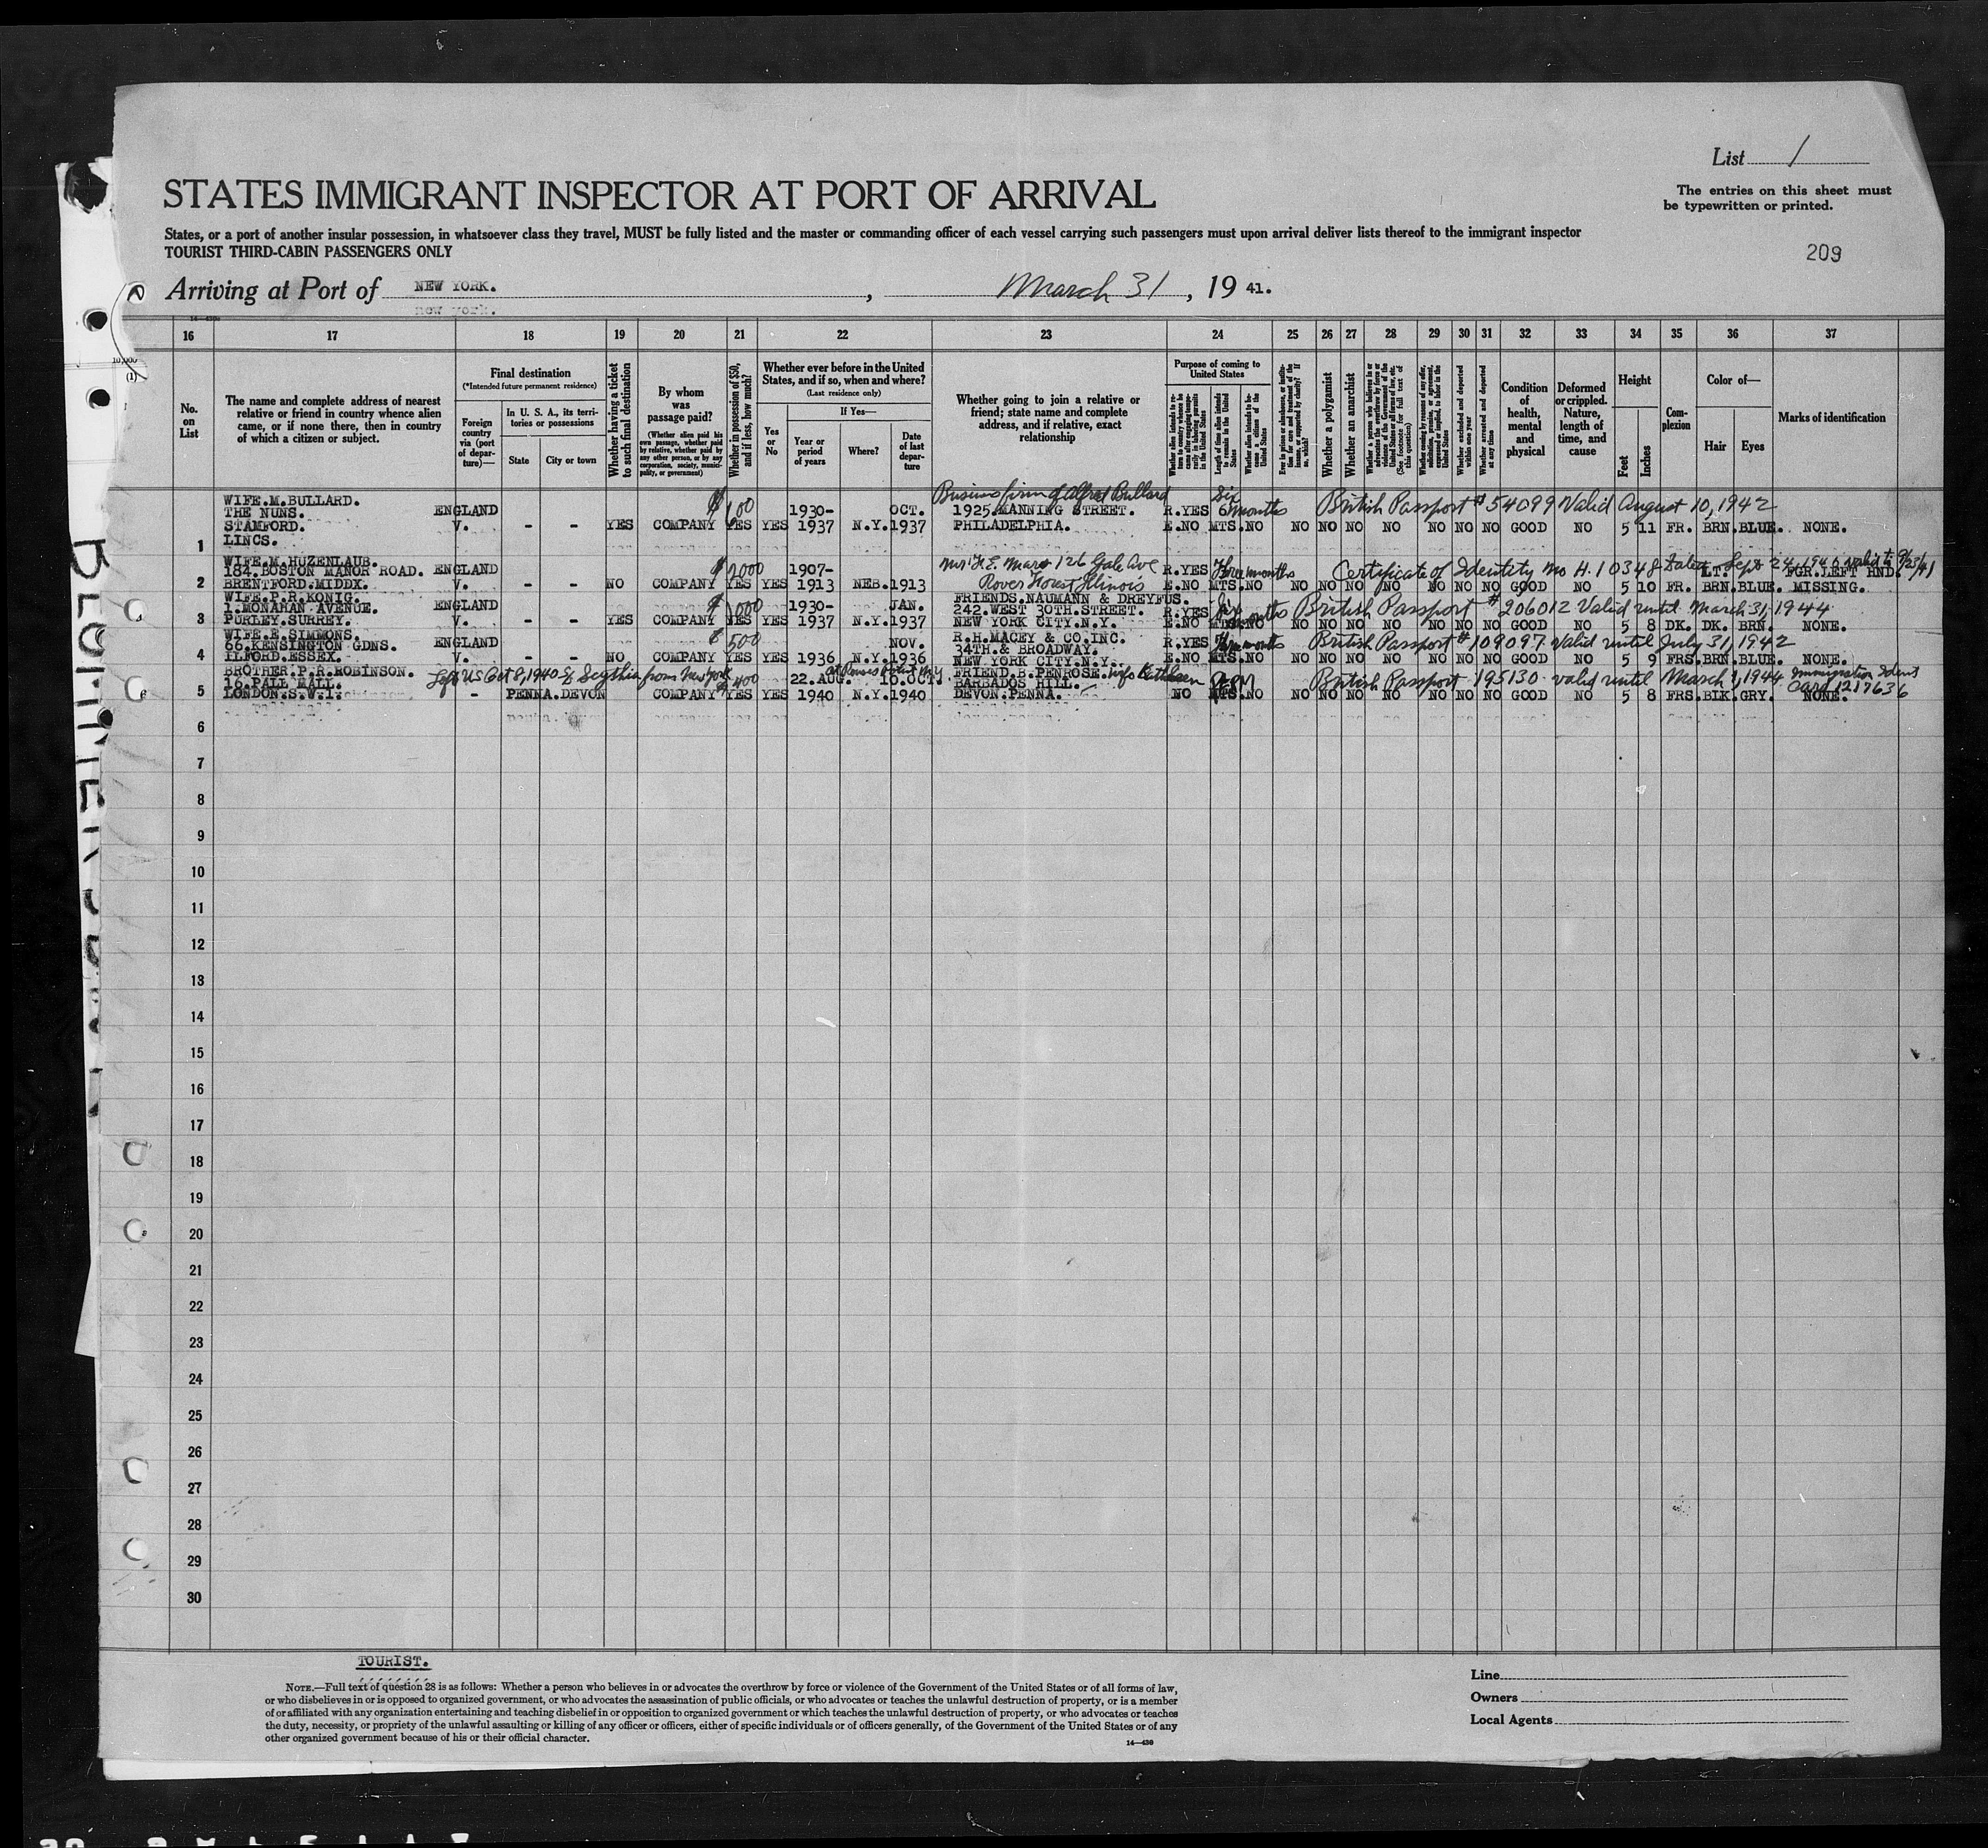 List 1
STATES IMMIGRANT INSPECTOR AT PORT OF ARRIVAL
The entries on this sheet must
be typewritten or printed.
States, or a port of another insular possession, in whatsoever class they travel, MUST be fully listed and the master or commanding officer of each vessel carrying such passengers must upon arrival deliver lists thereof to the immigrant inspector
TOURIST THIRD-CABIN PASSENGERS ONLY
209
Arriving at Port of NEW YORK. , March 31, 1941.
16 17 18 19 20 21 22 23 24 25 26 27 28 29 30 31 32 33 34 35 36 37
No. on List
The name and complete address of nearest relative or friend in country whence alien came, or if none there, then in country of which a citizen or subject.
Final destination
(*Intended future permanent residence)
Foreign country via (port of departure)—
In U. S. A., its territories or possessions
State
City or town
Whether having a ticket to such final destination
By whom was passage paid?
(Whether alien paid his own passage, whether paid by relative, whether paid by any other person, or by any corporation, society, municipality, or government)
Whether in possession of $50, and if less, how much?
Whether ever before in the United States, and if so, when and where?
(Last residence only)
Yes or No
If Yes—
Year or period of years
Where?
Date of last departure
Whether going to join a relative or friend; state name and complete address, and if relative, exact relationship
Purpose of coming to United States
Length of time alien intends to remain in the United States
Whether alien intends to become a citizen of the United States
Whether a polygamist
Whether an anarchist
Whether excluded and deported within one year
Whether arrested and deported at any time
Condition of health, mental and physical
Deformed or crippled. Nature, length of time, and cause
Height
Feet
Inches
Complexion
Color of—
Hair
Eyes
Marks of identification
1 WIFE.M.BULLARD.
THE NUNS.
STAMFORD.
LINCS.
ENGLAND V. - - YES COMPANY $100 YES YES 1930-1937 N.Y. OCT. 1937
Business firm of Alfred Bullard
1925 MANNING STREET.
PHILADELPHIA.
R.YES E.NO Six months 6 MTS. NO NO NO NO NO NO NO NO GOOD NO 5 11 FR. BRN. BLUE. NONE.
British Passport # 54099 Valid August 10, 1942
2 WIFE.M.HUZENLAUB.
184.BOSTON MANOR ROAD.
BRENTFORD.MIDDX.
ENGLAND V. - - NO COMPANY YES YES 1907-1913 NEB. 1913
R.YES E.NO Three months MTS. NO NO NO NO NO NO NO NO GOOD NO 5 10 FR. BRN. BLUE. LT. FGR.LEFT HND. MISSING.
Certificate of Identity No H.10348
3 WIFE.P.R.KONIG.
1.MONAHAN AVENUE.
PURLEY.SURREY.
ENGLAND V. - - YES COMPANY $1000 YES YES 1930-1937 N.Y. JAN. 1937
FRIENDS.NAUMANN & DREYFUS.
242.WEST 30TH.STREET.
NEW YORK CITY.N.Y.
R.YES E.NO Six months MTS. NO NO NO NO NO NO NO NO GOOD NO 5 8 DK. DK. BRN. NONE.
British Passport # 206012 Valid until March 31, 1944
4 WIFE.E.SIMMONS.
66.KENSINGTON GDNS.
ILFORD.ESSEX.
ENGLAND V. - - NO COMPANY $500 YES YES 1936 N.Y. NOV. 1936
R.H.MACEY & CO.INC.
34TH.& BROADWAY.
NEW YORK CITY.N.Y.
R.YES E.NO months MTS. NO NO NO NO NO NO NO NO GOOD NO 5 9 FRS. BRN. BLUE. NONE.
British Passport # 109097 Valid until July 31, 1942
5 BROTHER.P.R.ROBINSON.
16.PALL MALL.
LONDON.S.W.1.
Left US Oct 8, 1940 Scythia from New York
- PENNA. DEVON COMPANY $400 YES YES 22.AUG. 1940 N.Y. 16.OCT. 1940
FRIEND.B.PENROSE.
BARBADOS HILL.
DEVON.PENNA.
NO Perm MTS. NO NO NO NO NO NO NO NO GOOD NO 5 8 FRS. BLK. GRY. NONE.
British Passport 195130 valid until March 1, 1944 Immigration Ident Card 1217636
6
7
8
9
10
11
12
13
14
15
16
17
18
19
20
21
22
23
24
25
26
27
28
29
30
TOURIST.
NOTE.—Full text of question 28 is as follows: Whether a person who believes in or advocates the overthrow by force or violence of the Government of the United States or of all forms of law,
or who disbelieves in or is opposed to organized government, or who advocates the assassination of public officials, or who advocates or teaches the unlawful destruction of property, or is a member
of or affiliated with any organization entertaining and teaching disbelief in or opposition to organized government or which teaches the unlawful destruction of property, or who advocates or teaches
the duty, necessity, or propriety of the unlawful assaulting or killing of any officer or officers, either of specific individuals or of officers generally, of the Government of the United States or of any
other organized government because of his or their official character.
14—438
Line
Owners
Local Agents